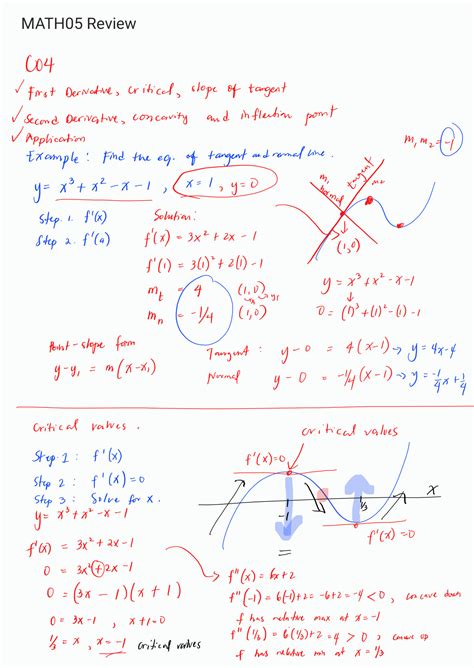 MATH05 Review
CO4
✓ First Derivative, critical, slope of tangent
✓ Second Derivative, concavity and inflection point
✓ Application
Example: Find the eq. of tangent and normal line.
y = x³ + x² - x - 1, x = 1, y = 0
m₁ m₂ = -1
m₁
normal
tangent
m₂
(1,0)
Step 1. f'(x)
Step 2. f'(a)
Solution:
f'(x) = 3x² + 2x - 1
f'(1) = 3(1)² + 2(1) - 1
m_t = 4 (1,0)
x₁ y₁
m_n = -1/4 (1,0)
y = x³ + x² - x - 1
0 = (1)³ + (1)² - (1) - 1
Point-slope form
y - y₁ = m(x - x₁)
Tangent: y - 0 = 4(x-1) → y = 4x - 4
Normal y - 0 = -1/4(x-1) → y = -1/4x + 1/4
critical values.
Step 1: f'(x)
Step 2: f'(x) = 0
Step 3: Solve for x.
y = x³ + x² - x - 1
critical values
f'(x)=0
-1
1/3
x
f'(x) = 0
f'(x) = 3x² + 2x - 1
0 = 3x² + 2x - 1
0 = (3x - 1)(x + 1)
0 = 3x - 1, x + 1 = 0
1/3 = x, x = -1 critical values
f''(x) = 6x + 2
f''(-1) = 6(-1) + 2 = -6 + 2 = -4 < 0, concave down
f has relative max at x = -1
f''(1/3) = 6(1/3) + 2 = 4 > 0, concave up
f has relative min at x = 1/3